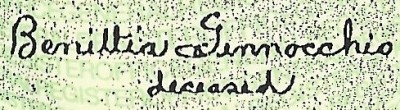 Benittia Gennocchio
deceased